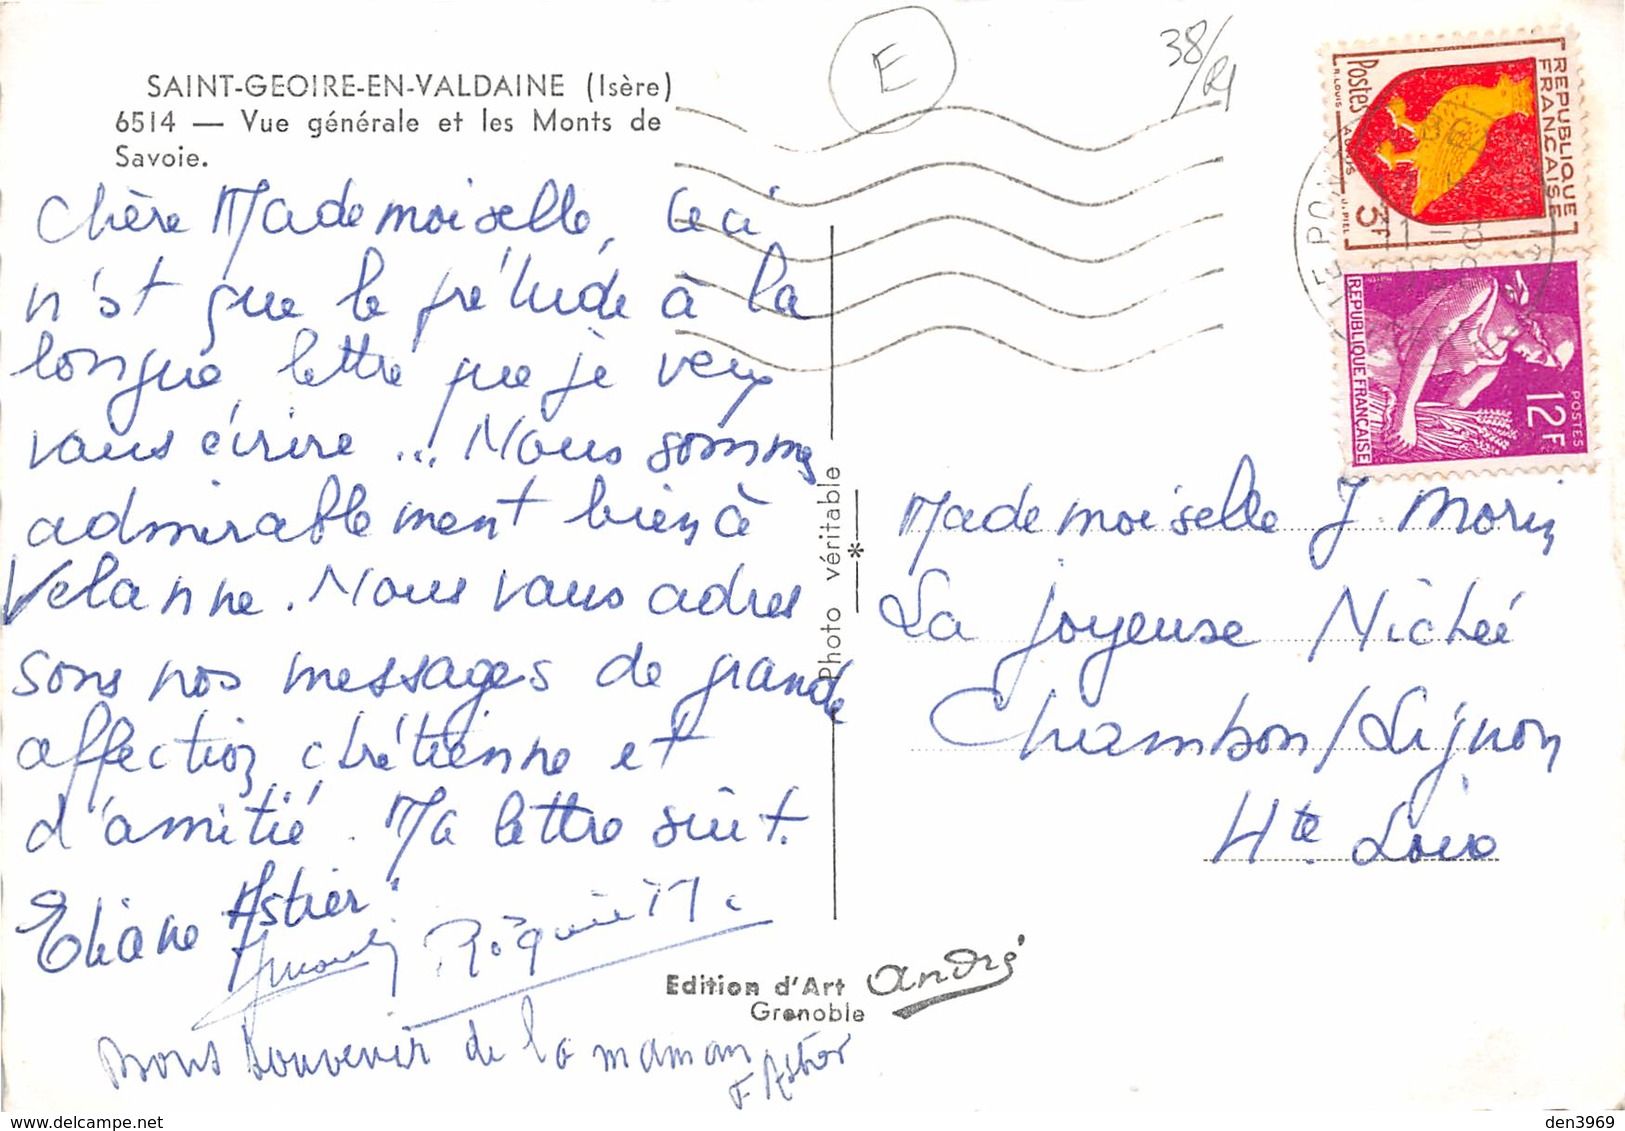 SAINT-GEOIRE-EN-VALDAINE (Isère)
6514 — Vue générale et les Monts de
Savoie.
E
38/
Chère Mademoiselle, Ceci
n'st que le prélude à la
longue lettre que je veux
vous écrire ... Nous sommes
admirablement bien à
Velanne. Nous vous adres
sons nos messages de grande
affection chrétienne et
d'amitié. Ma lettre suit.
Eliane Astier
Bons Souvenir de la maman
F Astier
Photo véritable
*
Edition d'Art André
Grenoble
REPUBLIQUE
FRANÇAISE
Postes
3F
R. LOUIS
J. PIEL
REPUBLIQUE FRANÇAISE
POSTES
12F
Mademoiselle J. Morin
La Joyeuse Nichée
Chambon/Lignon
Hte Loire
www.delcampe.net
den3969